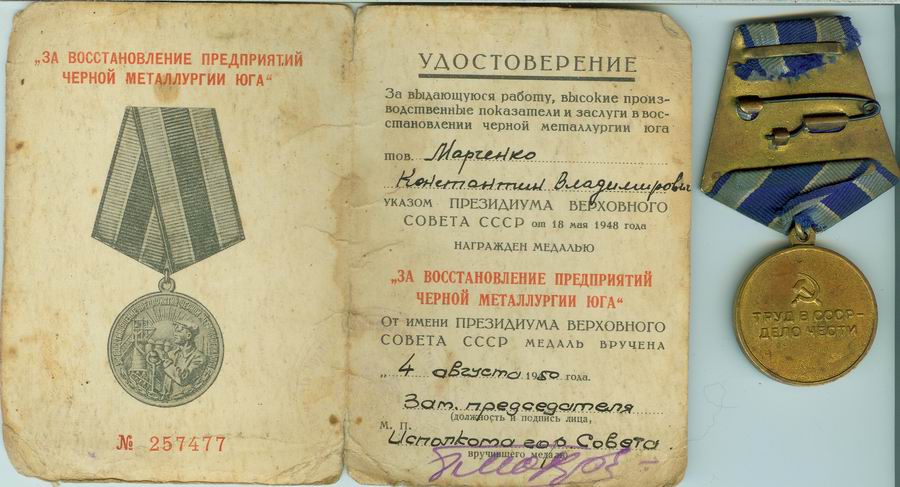 „ЗА ВОССТАНОВЛЕНИЕ ПРЕДПРИЯТИЙ
ЧЕРНОЙ МЕТАЛЛУРГИИ ЮГА“
№ 257477
УДОСТОВЕРЕНИЕ
За выдающуюся работу, высокие произ-
водственные показатели и заслуги в вос-
становлении черной металлургии юга
тов. Марченко
Константин Владимирович
УКАЗОМ ПРЕЗИДИУМА ВЕРХОВНОГО
СОВЕТА СССР от 18 мая 1948 года
НАГРАЖДЕН МЕДАЛЬЮ
„ЗА ВОССТАНОВЛЕНИЕ ПРЕДПРИЯТИЙ
ЧЕРНОЙ МЕТАЛЛУРГИИ ЮГА“
От имени ПРЕЗИДИУМА ВЕРХОВНОГО
СОВЕТА СССР МЕДАЛЬ ВРУЧЕНА
„4 августа 1950 года.
Зам. председателя
(должность и подпись лица,
М. П.
Исполкома гор. Совета
вручившего медаль)
ТРУД В СССР-
ДЕЛО ЧЕСТИ